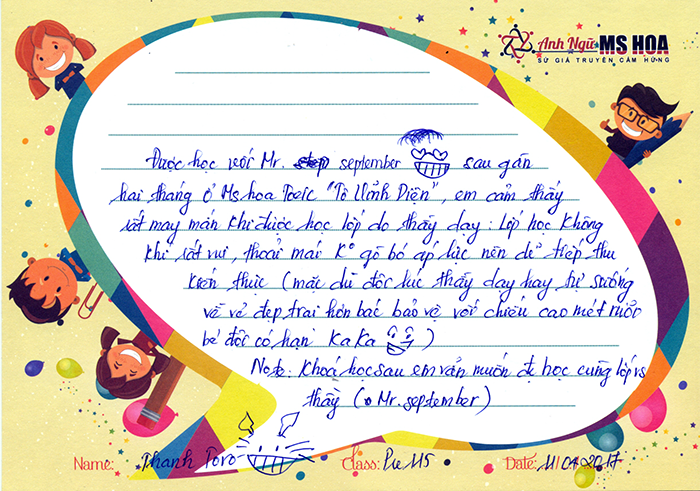 Anh Ngữ MS HOA
SỨ GIẢ TRUYỀN CẢM HỨNG
Được học với Mr. september sau gần
hai tháng ở Ms hoa Toeic "Tô Vĩnh Diện", em cảm thấy
rất may mắn khi được học lớp do thầy dạy: Lớp học không
khí rất vui, thoải mái K° gò bó áp lực nên dễ tiếp thu
kiến thức (mặc dù đôi lúc thầy dạy hay tự sướng
về vẻ đẹp trai hơn bác bảo vệ với chiều cao mét rưỡi
bẻ đôi có hạn KaKa )
Note: Khoá học sau em vẫn muốn đc học cùng lớp vs
thầy (Mr. september)
Name: Thanh Toro Class: Pre 115 Date: 11/04/2017